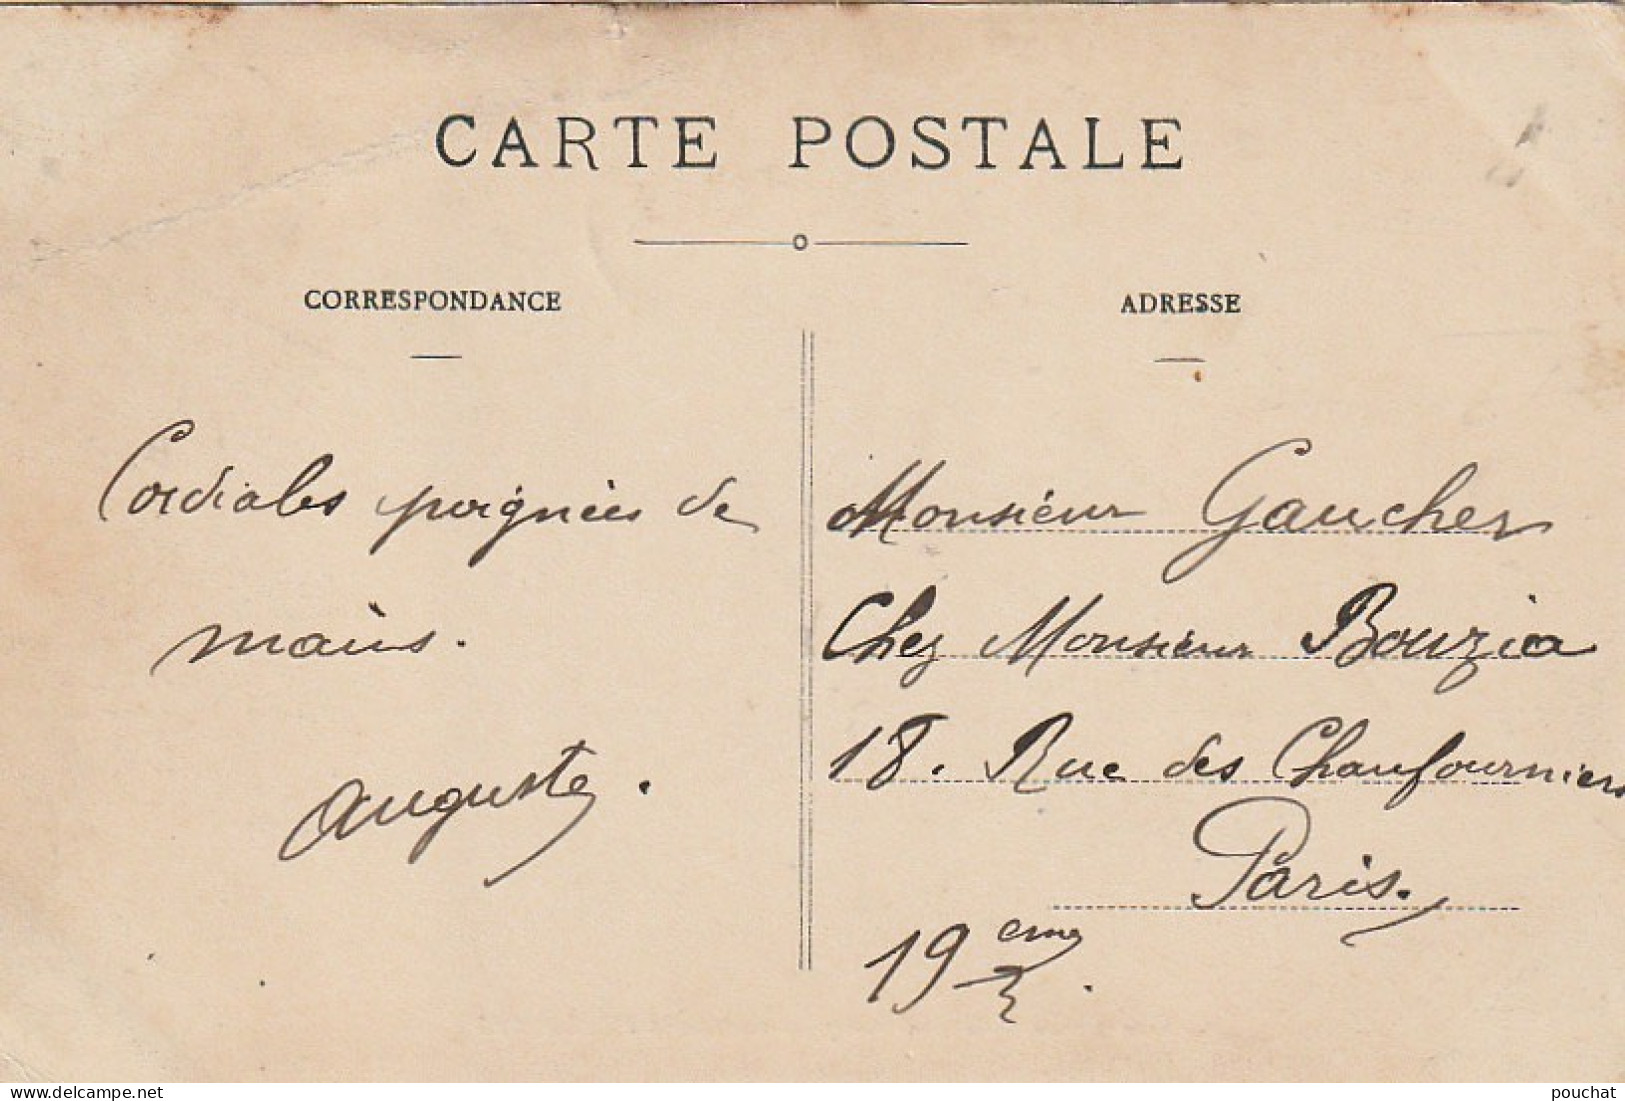 CARTE POSTALE
CORRESPONDANCE
Cordiales poignées de
mains.
Auguste.
ADRESSE
Monsieur Gaucher
Chez Monsieur Bouzia
18. Rue des Chaufourniers
Paris.
19eme.
delcampe.net
pouchat